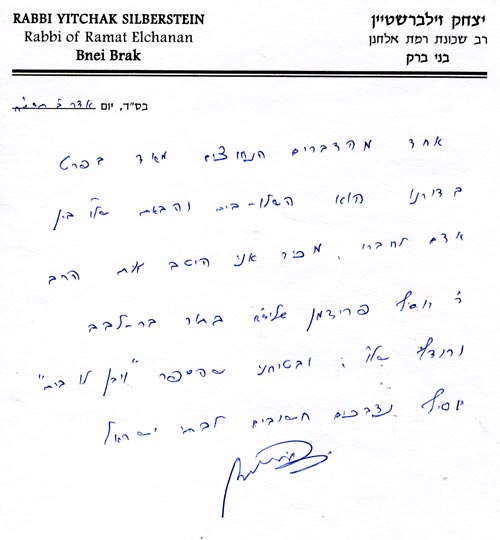 RABBI YITCHAK SILBERSTEIN
Rabbi of Ramat Elchanan
Bnei Brak
יצחק זילברשטיין
רב שכונת רמת אלחנן
בני ברק
בס"ד, יום אדר ב'
אחד מהדברים הנחוצים מאד בפרט
בדורנו הוא השלו-בית והבאת שלו' בין
אדם לחברו. מכיר אני היטב את הרב
ר' יוסף פרידמן שליט"א בתור בר-לבב
ורודף שלו', ובטיחני שהספר "ויבן לו בית"
יוסיף נדבכים חשובים לבתי ישראל